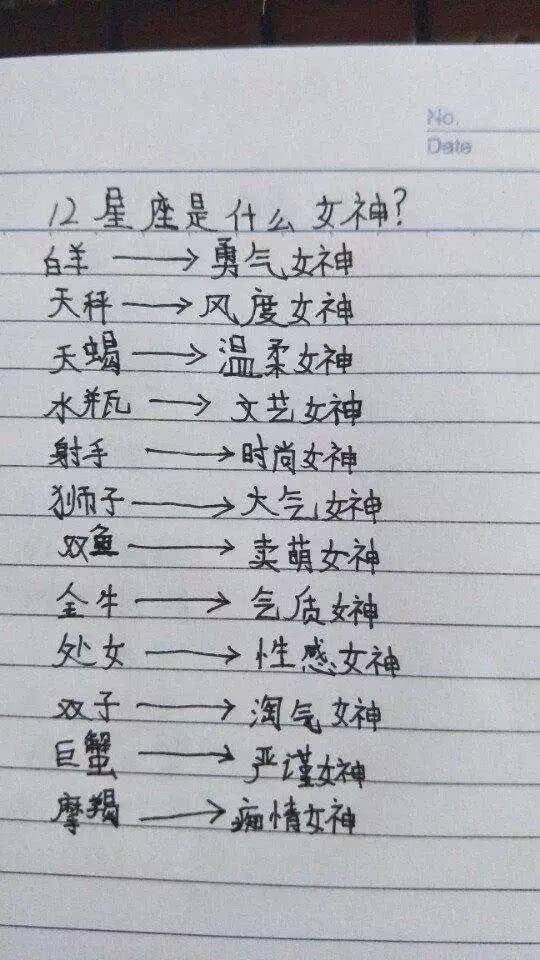 No.
Date
12星座是什么女神?
白羊 → 勇气女神
天秤 → 风度女神
天蝎 → 温柔女神
水瓶 → 文艺女神
射手 → 时尚女神
狮子 → 大气女神
双鱼 → 卖萌女神
金牛 → 气质女神
处女 → 性感女神
双子 → 淘气女神
巨蟹 → 严谨女神
摩羯 → 痴情女神